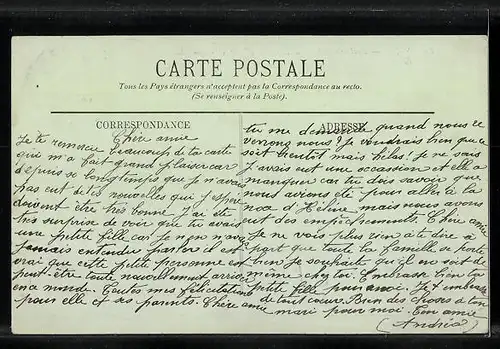 CARTE POSTALE
Tous les Pays étrangers n'acceptent pas la Correspondance au recto.
(Se renseigner à la Poste).
CORRESPONDANCE
Chère amie
Je te remercie beaucoup de ta carte
qui m'a fait grand plaisir car
depuis se longtemps que je n'avais
pas eut de tes nouvelles qui j'espère
doivent être très bonne. J'ai été
très surprise de voir que tu avais
une petite fille car je n'en avais
jamais entendu parler il est
vrai que cette petite personne est
peut être toute nouvellement arrivée
en a monde. Toutes mes félicitations
pour elle et ses parents. Chère amie
ADRESSE
tu me demande quand nous te
verrons nous? Je voudrais bien que ce
soit bientôt mais hélas! je ne sais
J'avais eut une occasion et elle a
manquer car tu dois savoir que
nous avions été pour aller à la
noce d'Hélène mais nous avons
eut des empêchements. Chère amie
je ne vois plus rien à te dire à
part que toute la famille se porte
bien je souhaite qu'il en soit de
même chez toi. Embrasse bien ta
petite fille pour moi. Je t'embrasse
de tout cœur. Bien des choses à ton
mari pour moi. Ton amie
(Andréa)